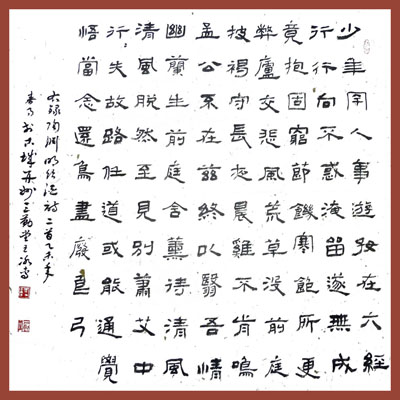 少年罕人事遊好在六經
行行向不惑淹留遂無成
竟抱固窮節饑寒飽所更
弊廬交悲風荒草沒前庭
披褐守長夜晨雞不肯鳴
孟公不在茲終以翳吾情
幽蘭生前庭含薰待清風
清風脫然至見別蕭艾中
行々失故路任道或能通覺
悟當念還鳥盡廢良弓
右錄陶淵明飲酒詩二首乙未年
春月於古城并州三勤堂